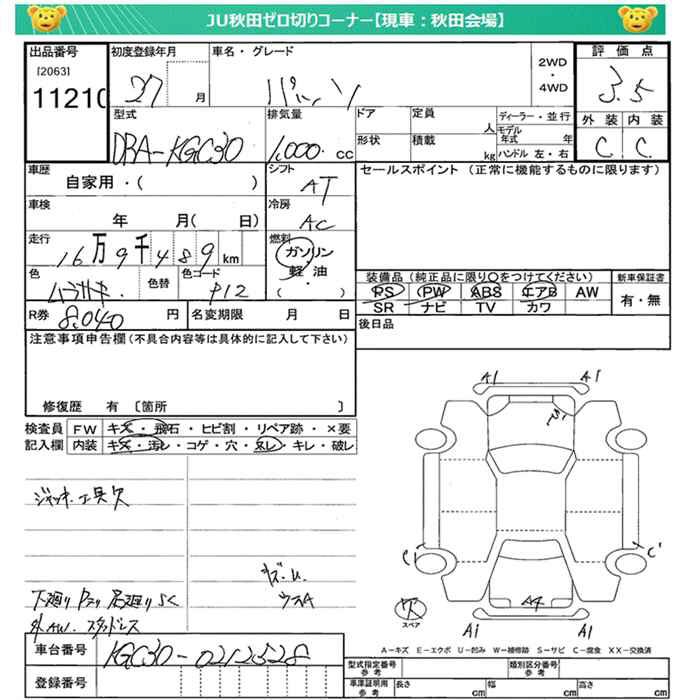 JU秋田ゼロ切りコーナー【現車：秋田会場】
出品番号 初度登録年月 車名・グレード 2WD ・ 4WD 評価点
[2063]
11210 27 月 パッソ 3.5
型式 排気量 ドア 定員 人 ディーラー・並行 外装 内装
モデル年式 年
DBA-KGC30 1,000 cc 形状 積載 kg ハンドル 左・右 C C
車歴 シフト セールスポイント（正常に機能するものに限ります）
自家用・( ) AT
車検 冷房
年 月( 日) AC
走行 燃料
16万9千489km ガソリン
軽・油
( )
色 色替 色コード 装備品（純正品に限り○をつけてください） 新車保証書
ムラサキ P12 PS PW ABS エアB AW 有・無
SR ナビ TV カワ
R券 8,040 円 名変期限 月 日 後日品
注意事項申告欄（不具合内容等は具体的に記入して下さい）
修復歴 有 〔箇所 〕
検査員 FW キズ・飛石・ヒビ割・リペア跡・×要
記入欄 内装 キズ・汚レ・コゲ・穴・スレ・キレ・破レ
A1 A1
ジャッキ、工具欠
C1 C1
下廻り
スタッドレス
欠
スペア
A1 A1
A－キズ E－エクボ U－凹み W－補修跡 S－サビ C－腐食 XX－交換済
車台番号 KGC30-0212528
登録番号
型式指定番号 参考 類別区分番号 参考
車庫証明用 参考 長さ cm 幅 cm 高さ cm